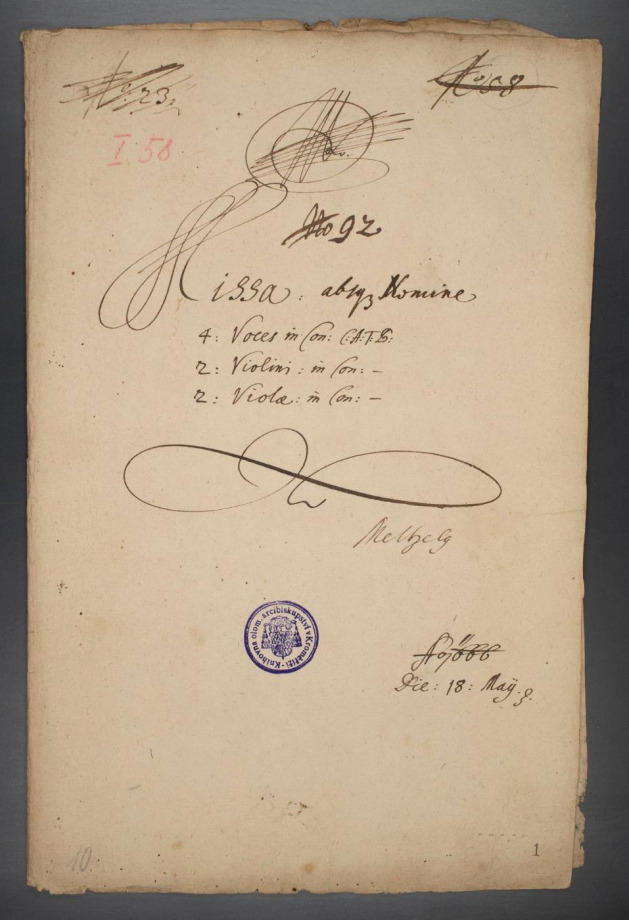 No: 23
No 58
I. 58
No 92
Missa: absq3 Nomine
4: Voces in Con: C:A:T:B:
2: Violini: in Con: –
2: Violæ: in Con: –
Knihovna olom. arcibiskupství v Kroměříži
Die: 18: Maÿ.
10.
1